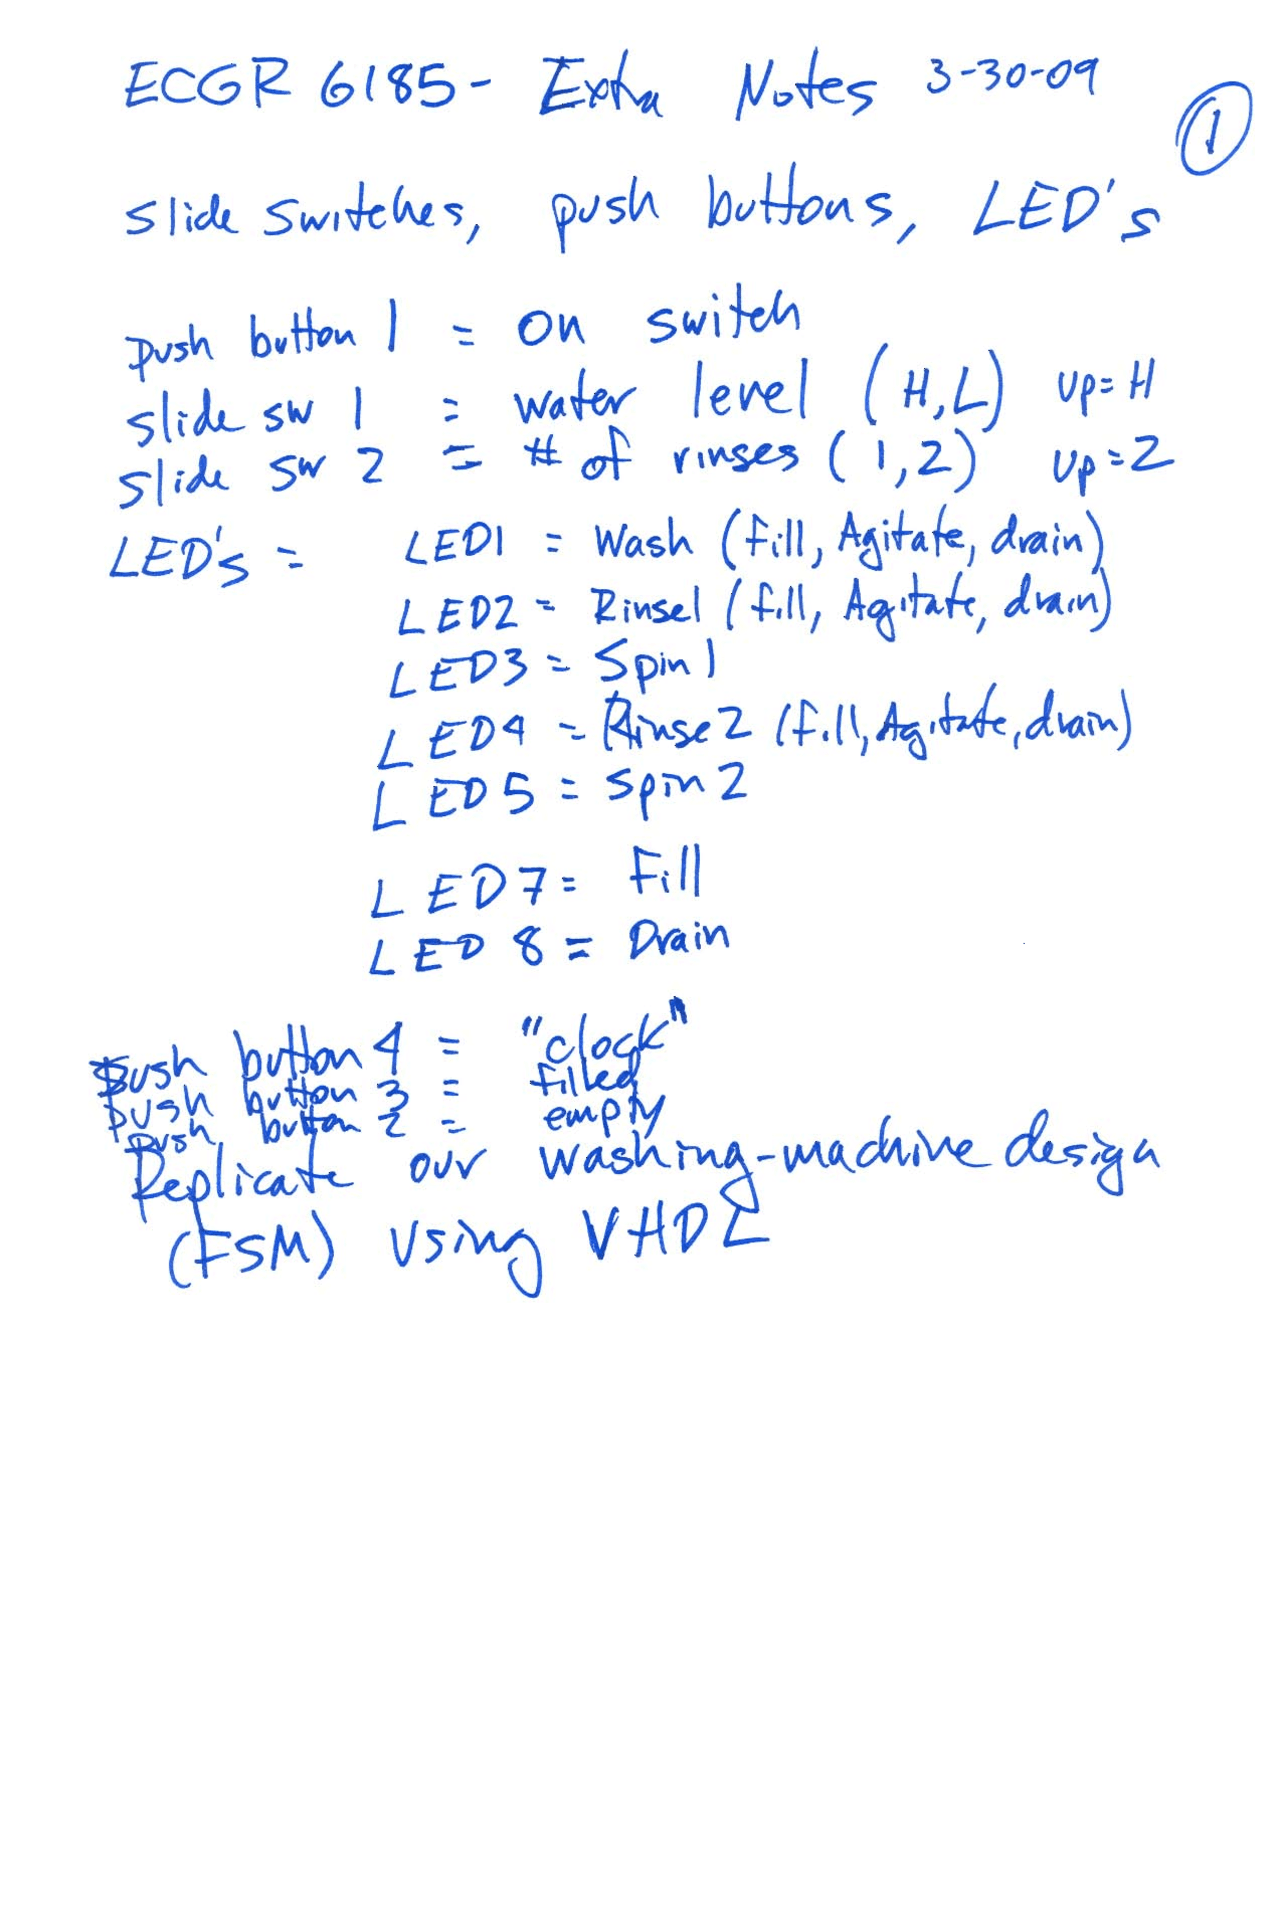 ECGR 6185 - Extra Notes 3-30-09
1
slide switches, push buttons, LED's
push button 1 = on switch
slide sw 1 = water level (H,L) up=H
slide sw 2 = # of rinses (1,2) up=2
LED's = LED1 = Wash (fill, Agitate, drain)
LED2 = Rinse1 (fill, Agitate, drain)
LED3 = Spin 1
LED4 = Rinse 2 (fill, Agitate, drain)
LED 5 = spin 2
LED 7 = Fill
LED 8 = Drain
push button 4 = "clock"
push button 3 = filled
push button 2 = empty
Replicate our washing-machine design
(FSM) using VHDL